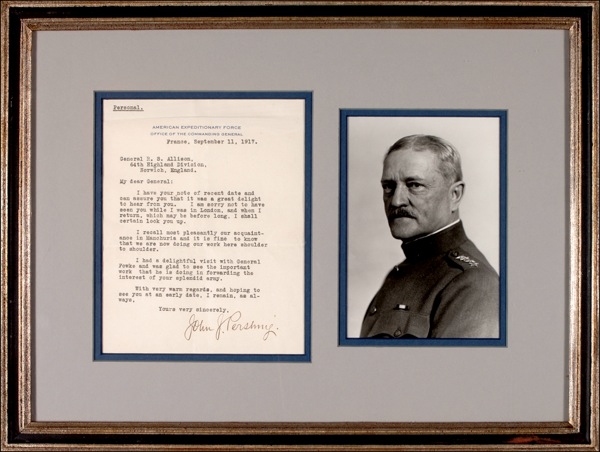 Personal.
AMERICAN EXPEDITIONARY FORCE
OFFICE OF THE COMMANDING GENERAL
France, September 11, 1917.
General D. S. Allison,
64th Highland Division,
Norwich, England.
My dear General:
I have your note of recent date and
can assure you that it was a great delight
to hear from you. I am sorry not to have
seen you while I was in London, and when I
return, which may be before long, I shall
certain look you up.
I recall most pleasantly our acquaint-
ance in Manchuria and it is fine to know
that we are now doing our work here shoulder
to shoulder.
I had a delightful visit with General
Fowke and was glad to see the important
work that he is doing in forwarding the
interest of your splendid army.
With very warm regards, and hoping to
see you at an early date, I remain, as al-
ways,
Yours very sincerely,
John J. Pershing.